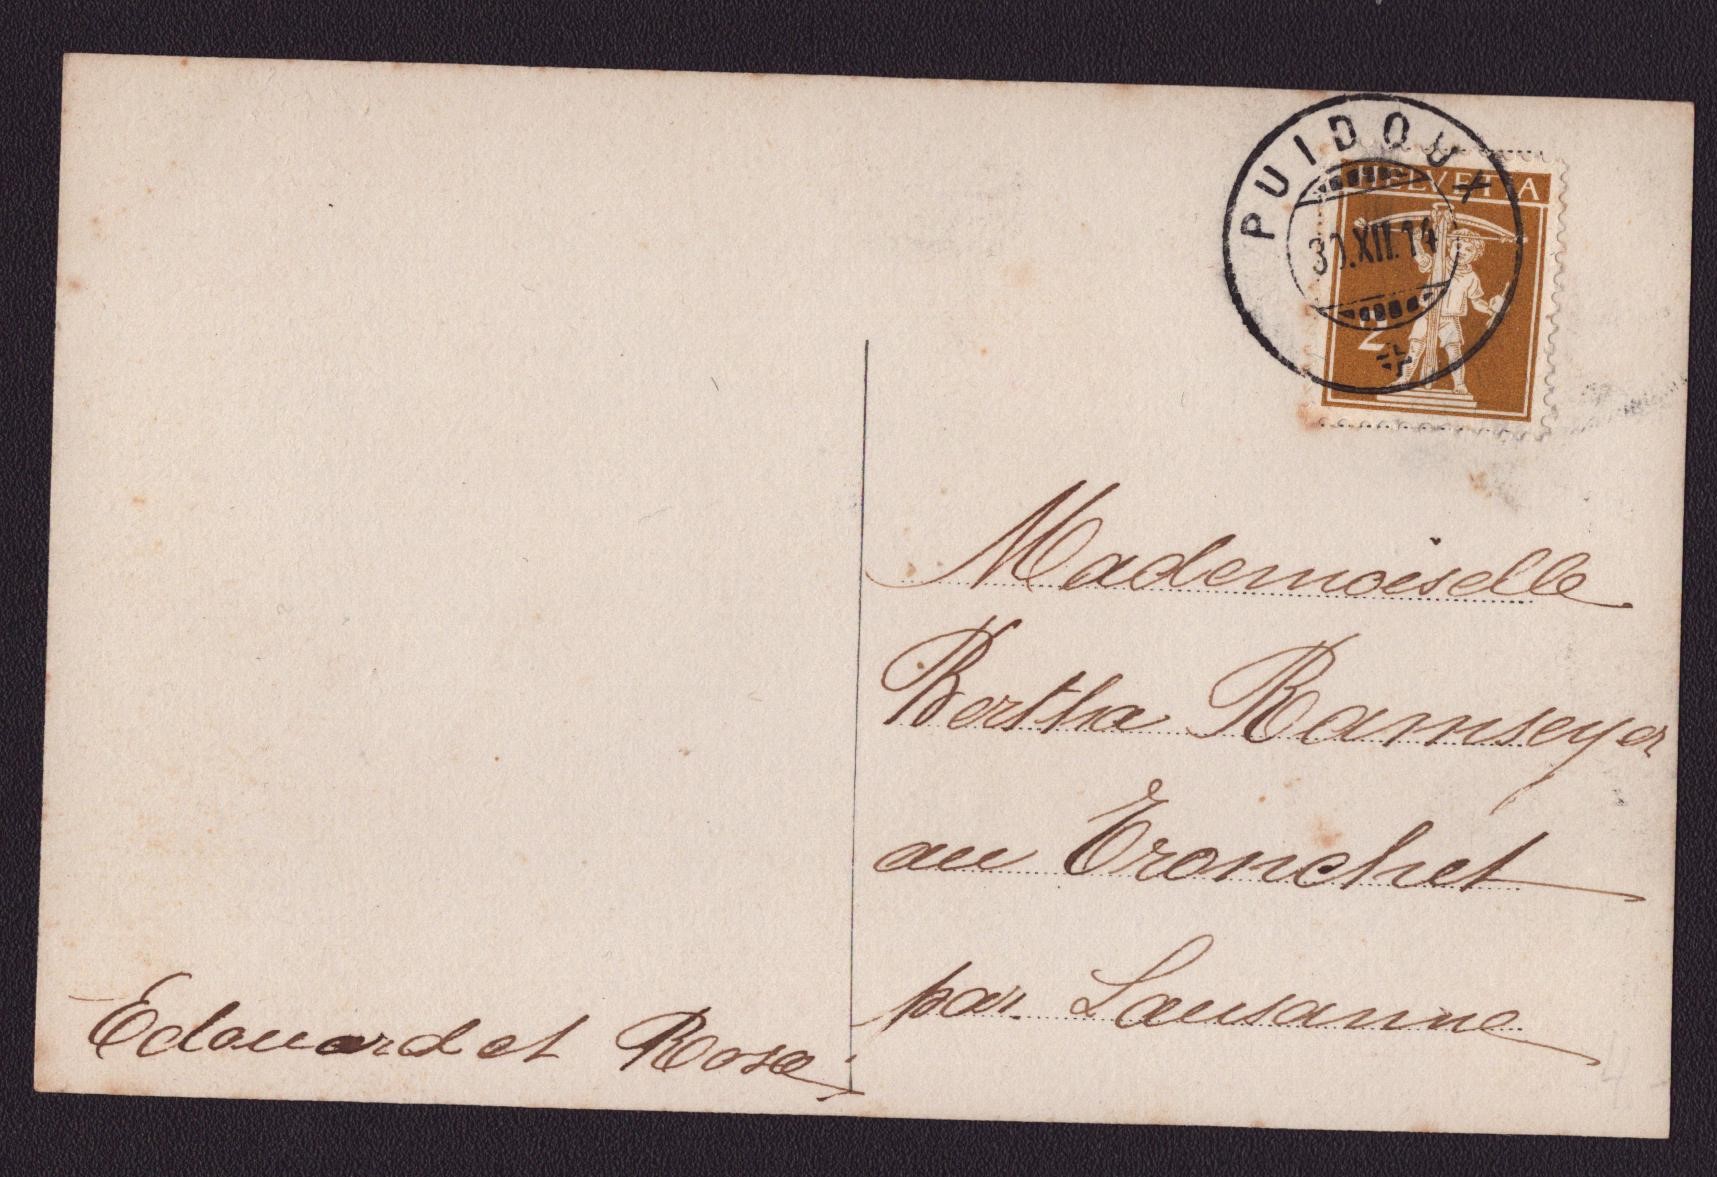 PUIDOUX
30.XII.14
HELVETIA
2
Mademoiselle
Bertha Ramseyer
au Tronchet
par Lausanne
Edouard et Rose
4